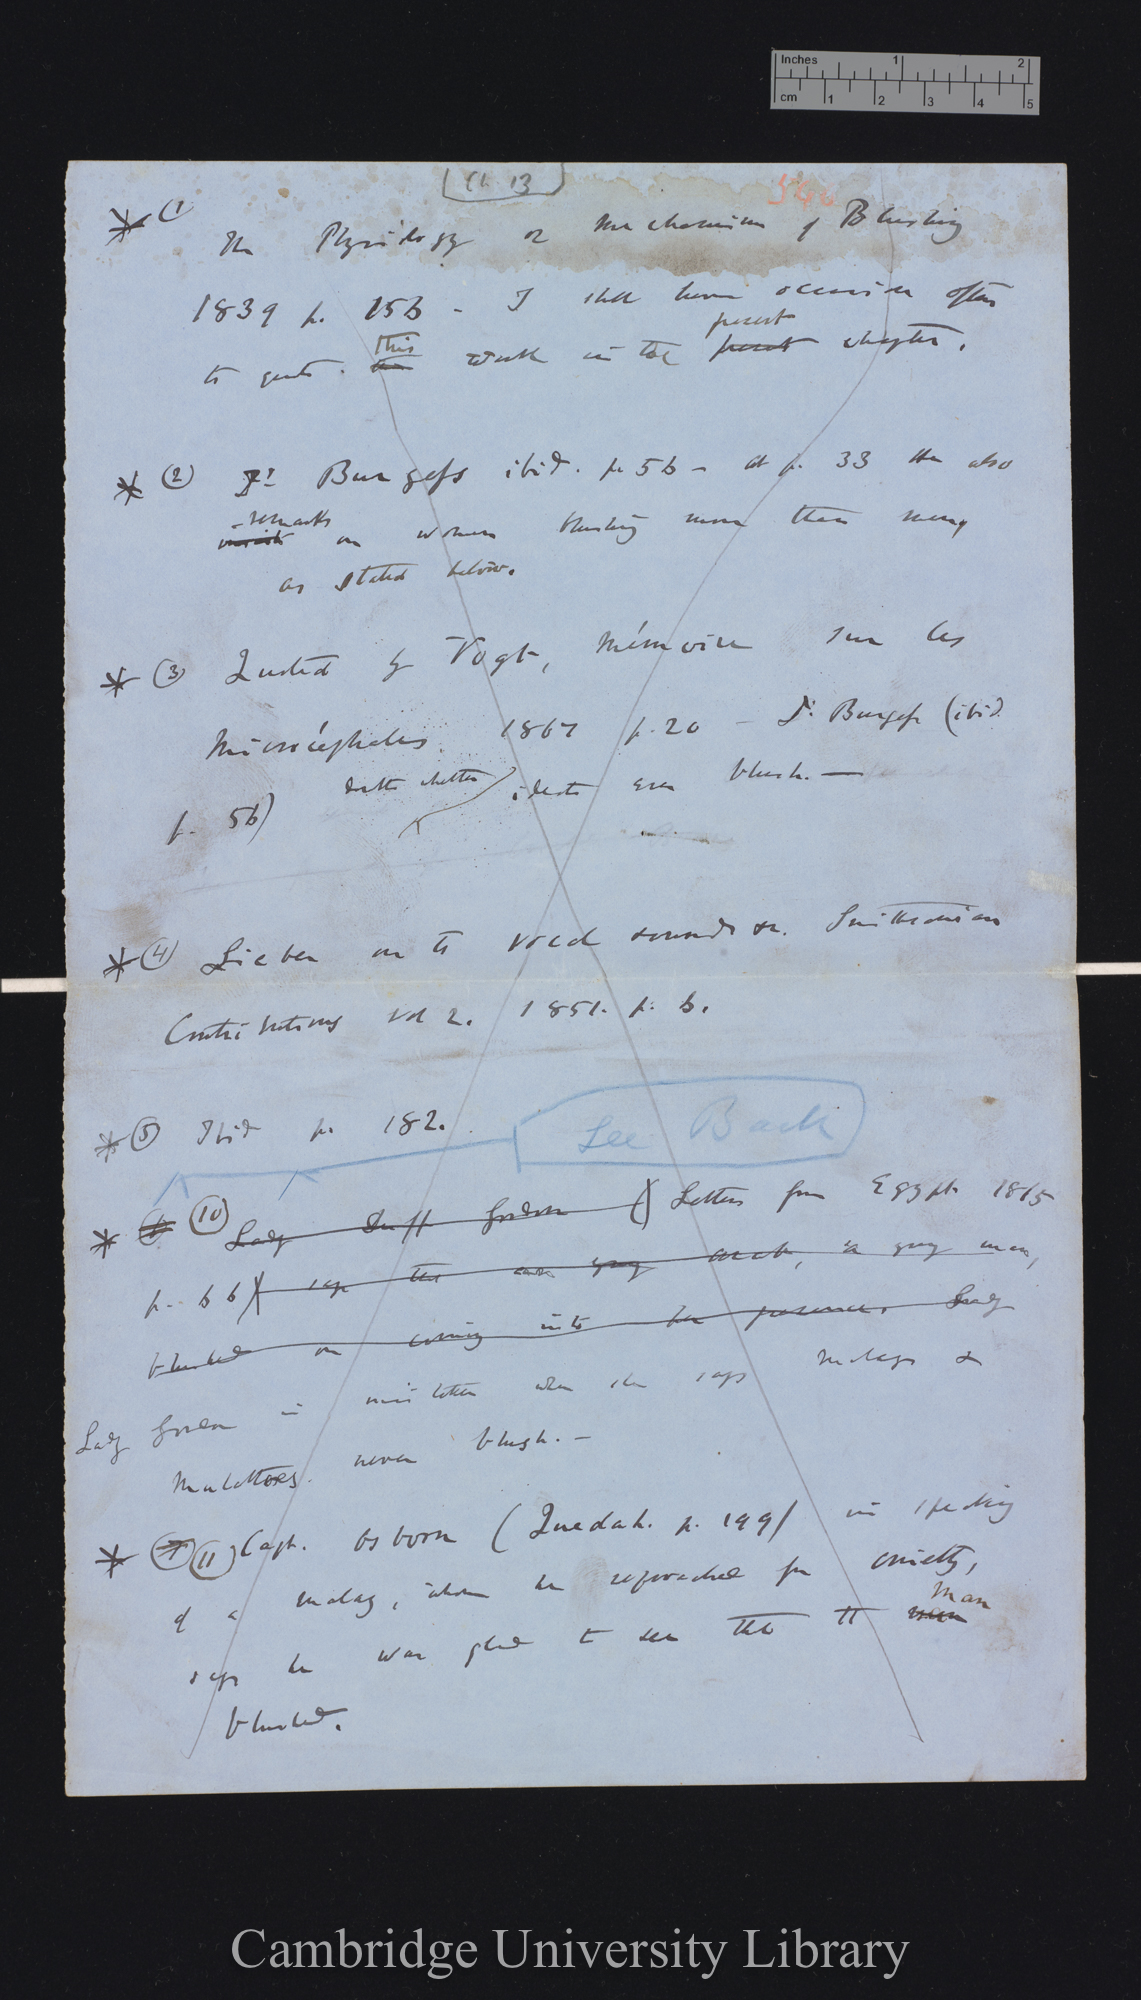 Inches 1 2
cm 1 2 3 4 5
Ch 13
* (1
The Physiology or mechanism of Blushing
1839 p. 156 - I shall have occasion often
present
to quote this work in the present chapter.
* (2) Dr Burgess ibid. p 56 - at p. 33 he also
remarks on women blushing more than men,
as stated below.
* (3) Quoted by Vogt, Mémoire sur les
Microcéphales. 1867 p. 20 - Dr. Burgess (ibid.
p. 56) doubts whether idiots ever blush. —
* (4) Lieber on the vocal sounds &c. Smithsonian
Contributions vol 2. 1851. p. 6.
* (5) Ibid p. 182.
See Back
* 6 (10) Lady Duff Gordon ( Letters from Egypt 1865
p. 66) says that a young Arab, a young man,
blushed on coming into her presence. Lady
Lady Gordon is mistaken when she says Malays &
Mulattoes never blush. —
* (7) (11) Capt. Osborn (Quedah. p. 199) in speaking
of a Malay, whom he reproached for cruelty,
man
says he was glad to see that the man
blushed.
Cambridge University Library